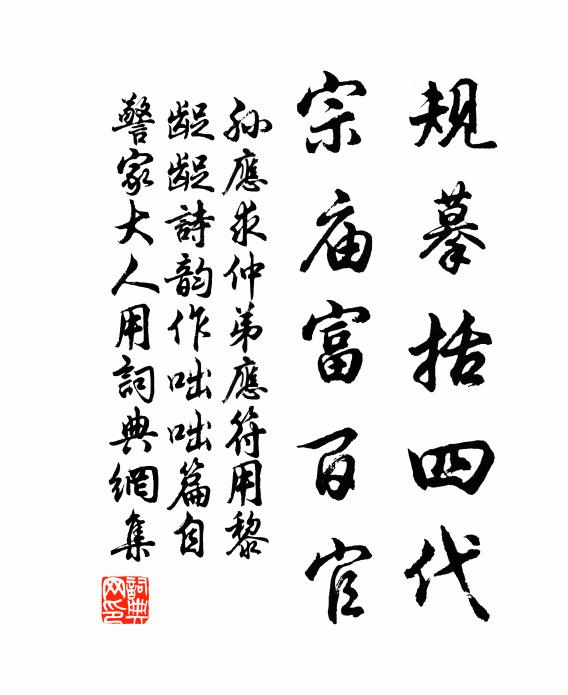 規摹括四代
宗庙富百官
孙應求仲弟應符用黎
齪齪詩韵作咄咄篇自
警家大人用詞典網集
詞典
网印